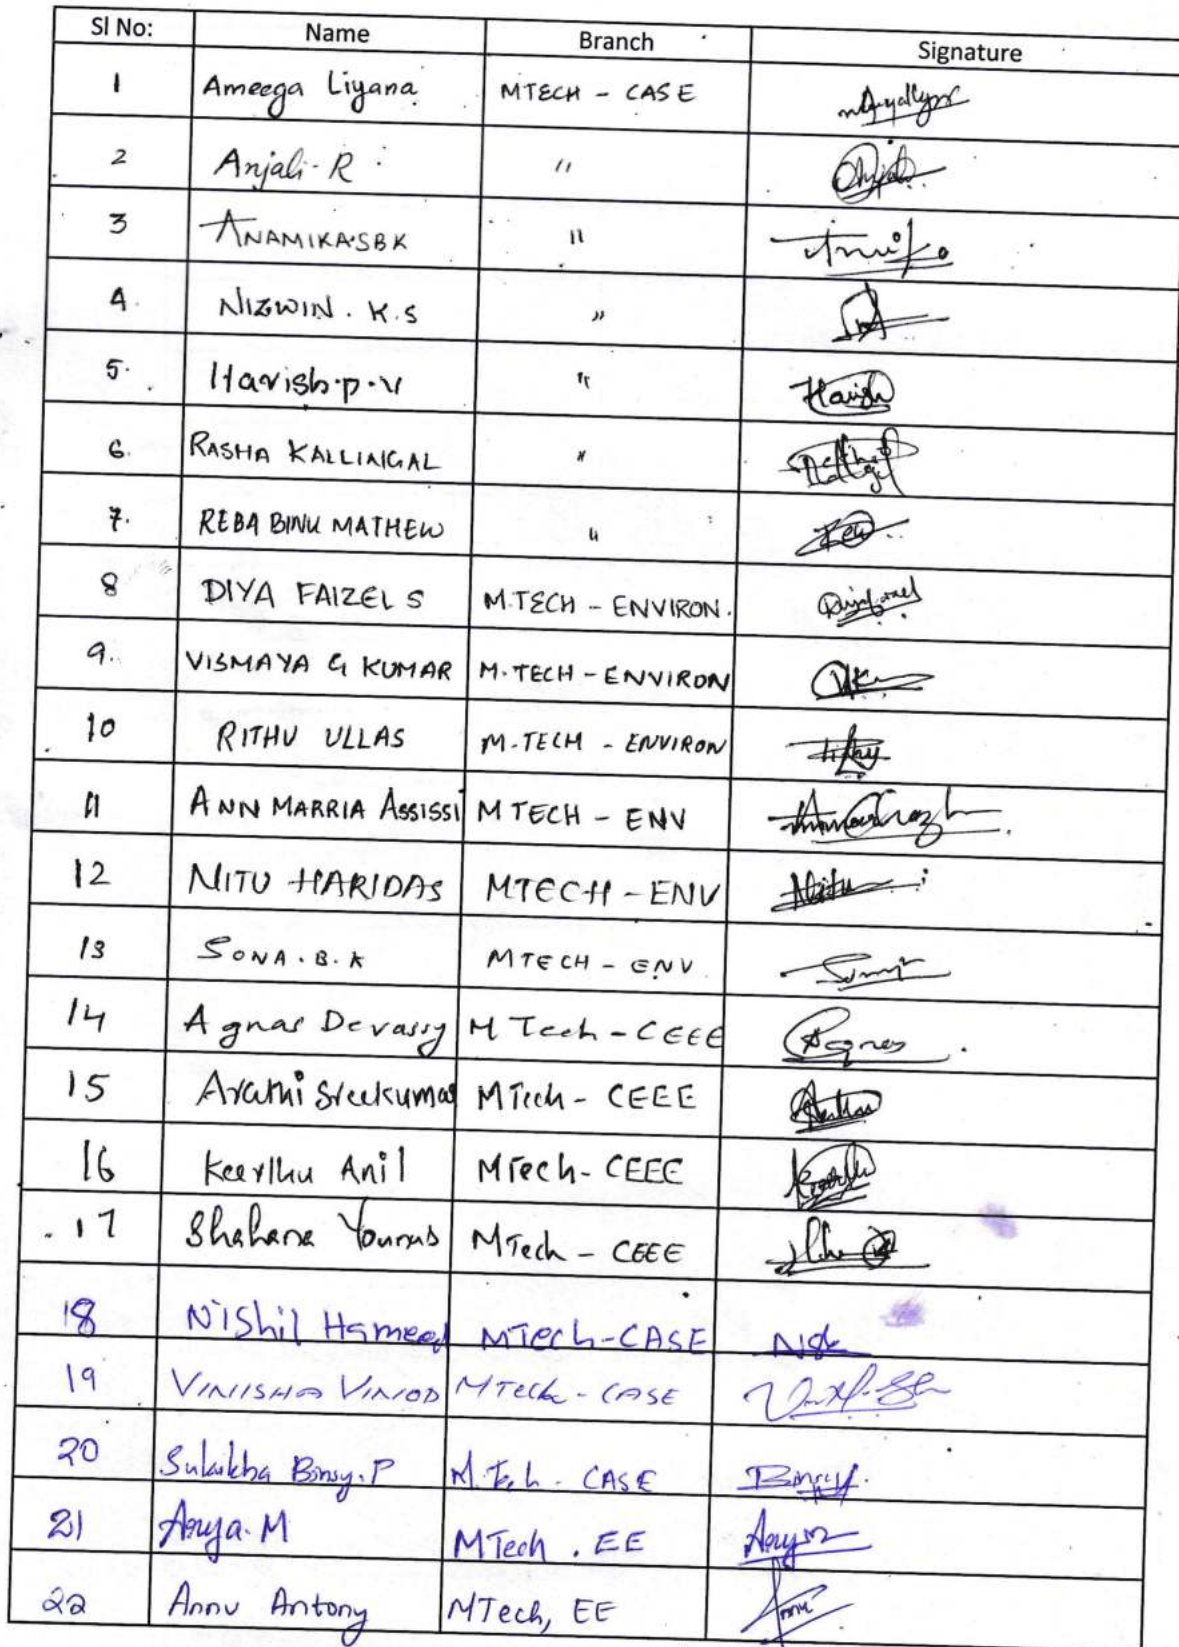 Sl No: Name Branch Signature
1 Ameega Liyana MTECH - CASE
2 Anjali R "
3 ANAMIKA SBK "
4. NIZWIN . K.S "
5. Harish.p.v " Harish
6. RASHA KALLINGAL "
7. REBA BINU MATHEW "
8 DIYA FAIZEL S M.TECH - ENVIRON.
9. VISMAYA G KUMAR M.TECH - ENVIRON
10 RITHU ULLAS M.TECH - ENVIRON
11 ANN MARRIA ASSISSI M TECH - ENV
12 NITU HARIDAS MTECH - ENV
13 SONA . B . K MTECH - ENV
14 Agnas Devassy M Tech - CEEE Agnes
15 Arathi Sreekumar MTech - CEEE
16 Keerthu Anil MTech - CEEE
17 Shahana Younus MTech - CEEE
18 NiShil Hameed MTech-CASE
19 VINISHA VINOD MTech - CASE
20 Binsy.P M.Tech - CASE
21 Anya.M MTech . EE
22 Annu Antony MTech, EE